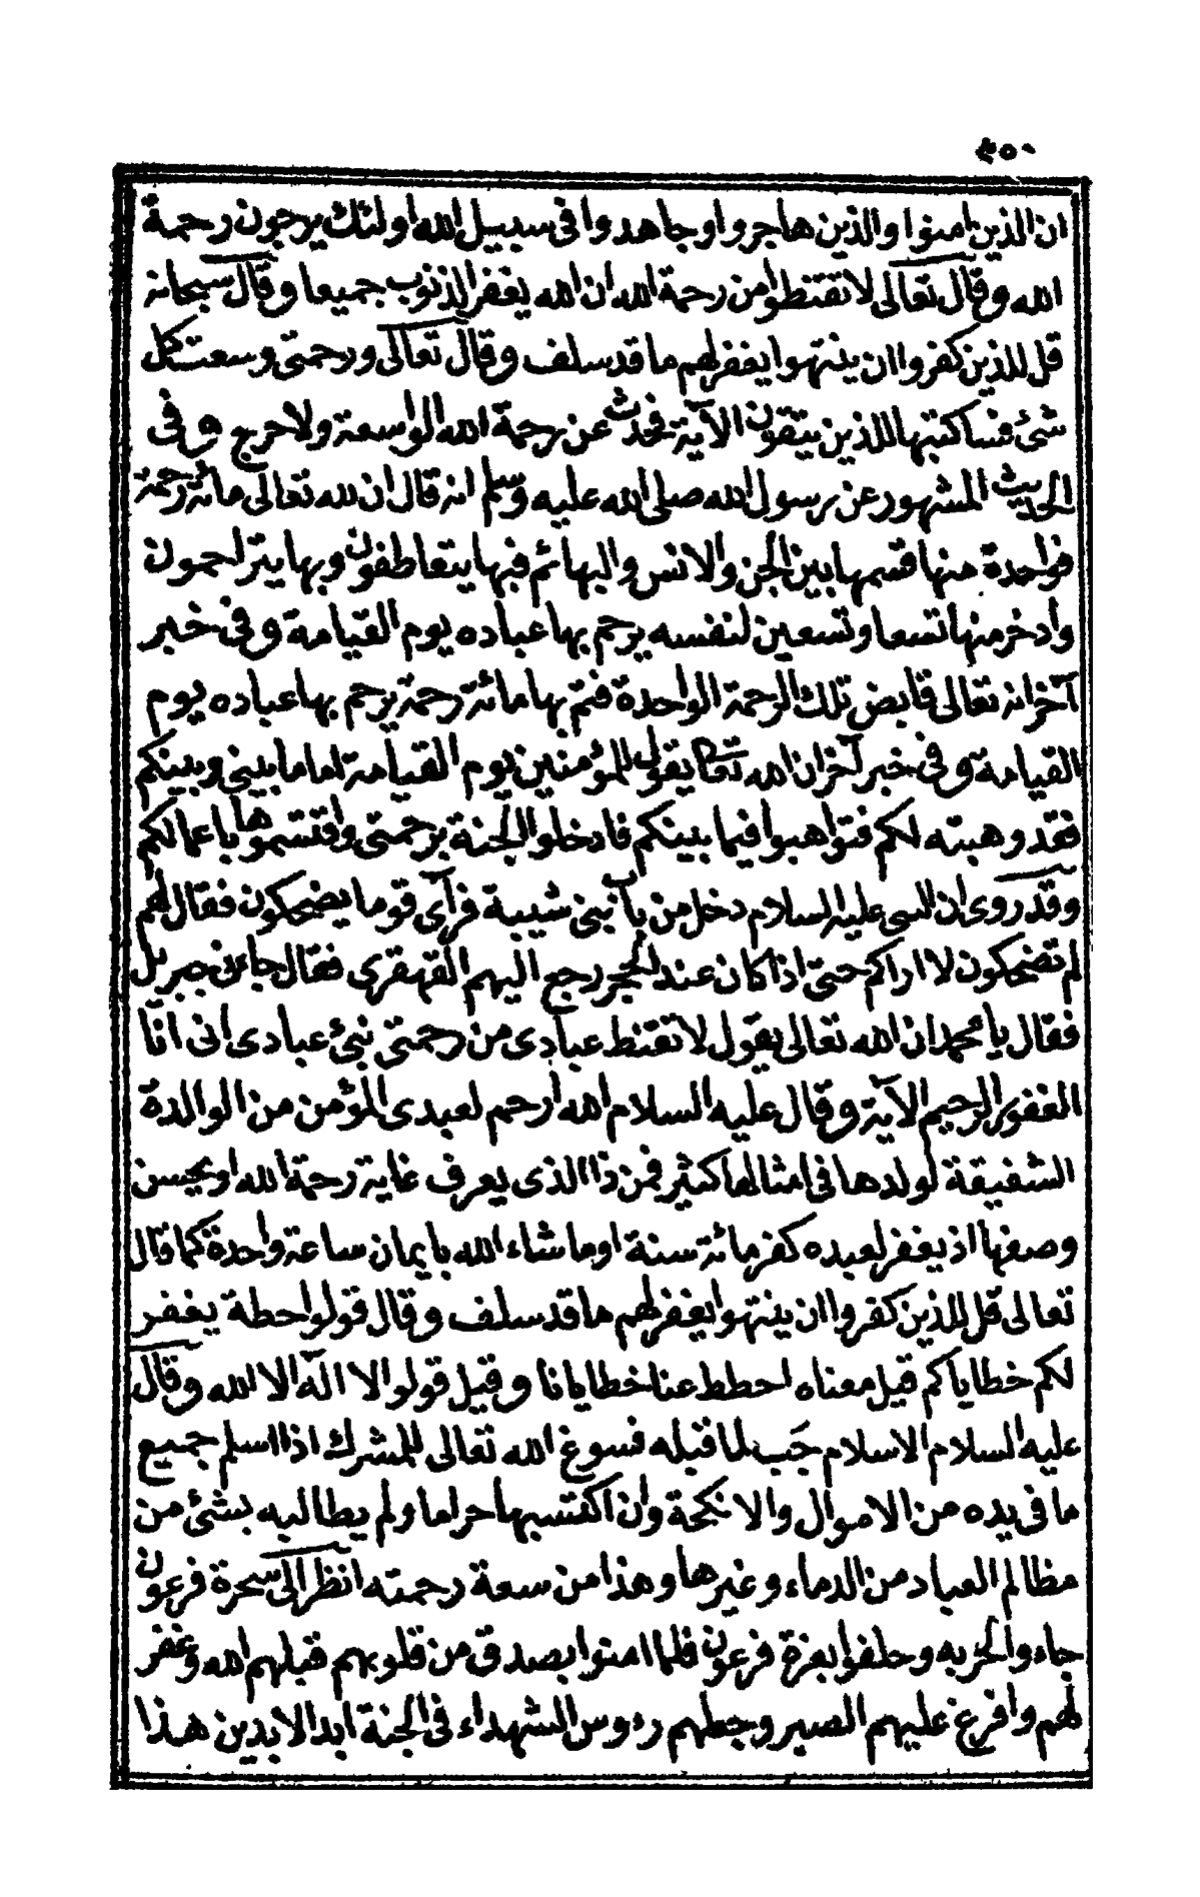 ٣٥٠
ان الذين امنوا والذين هاجروا وجاهدوا في سبيل الله اولئك يرجون رحمة
الله وقال تعالى لا تقنطوا من رحمة الله ان الله يغفر الذنوب جميعا وقال سبحانه
قل للذين كفروا ان ينتهوا يغفر لهم ما قد سلف وقال تعالى ورحمتي وسعت كل
شئ فساكتبها للذين يتقون الآية فحدث عن رحمة الله الواسعة ولا حرج وفى
الحديث المشهور عن رسول الله صلى الله عليه وسلم انه قال ان لله تعالى مائة رحمة
فواحدة منها قسمها بين الجن والانس والبهائم فبها يتعاطفون وبها يتراحمون
وادخر منها تسعا وتسعين لنفسه يرحم بها عباده يوم القيامة وفى خبر
آخر انه تعالى قابض تلك الرحمة الواحدة فتم بها مائة رحمة يرحم بها عباده يوم
القيامة وفى خبر آخر ان الله تعا يقول للمؤمنين يوم القيامة اما ما بينى وبينكم
فقد وهبته لكم فتواهبوا فيما بينكم فادخلوا الجنة برحمتى واقتسموها باعمالكم
وقد روى ان النبى عليه السلام دخل من باب بنى شيبة فرآى قوما يضحكون فقال لهم
لم تضحكون لا اراكم حتى اذا كان عند الحجر رجع اليهم القهقرى فقال جاءنى جبريل
فقال يا محمد ان الله تعالى يقول لا تقنط عبادى من رحمتى نبئ عبادى انى انا
الغفور الرحيم الآية وقال عليه السلام الله ارحم لعبدى المؤمن من الوالدة
الشفيقة لولدها فى امثالها كثير فمن ذا الذى يعرف غاية رحمة الله او يحسن
وصفها اذ يغفر لعبده كفر مائة سنة او ما شاء الله بايمان ساعة واحدة كما قال
تعالى قل للذين كفروا ان ينتهوا يغفر لهم ما قد سلف وقال قولوا حطة يغفر
لكم خطاياكم قيل معناه احطط عنا خطايانا وقيل قولوا لا اله الا الله وقال
عليه السلام الاسلام جَب لما قبله فسوغ الله تعالى للمشرك اذا اسلم جميع
ما فى يده من الاموال والانكحة وان اكتسبها حراما ولم يطالبه بشئ من
مظالم العباد من الدماء وغيرها وهذا من سعة رحمته انظر الى سحرة فرعون
جاءوا لحربه وحلفوا بعزة فرعون فلما امنوا بصدق من قلوبهم قبلهم الله وغفر
لهم وافرغ عليهم الصبر وجعلهم رءوس الشهداء فى الجنة ابد الابدين هذا